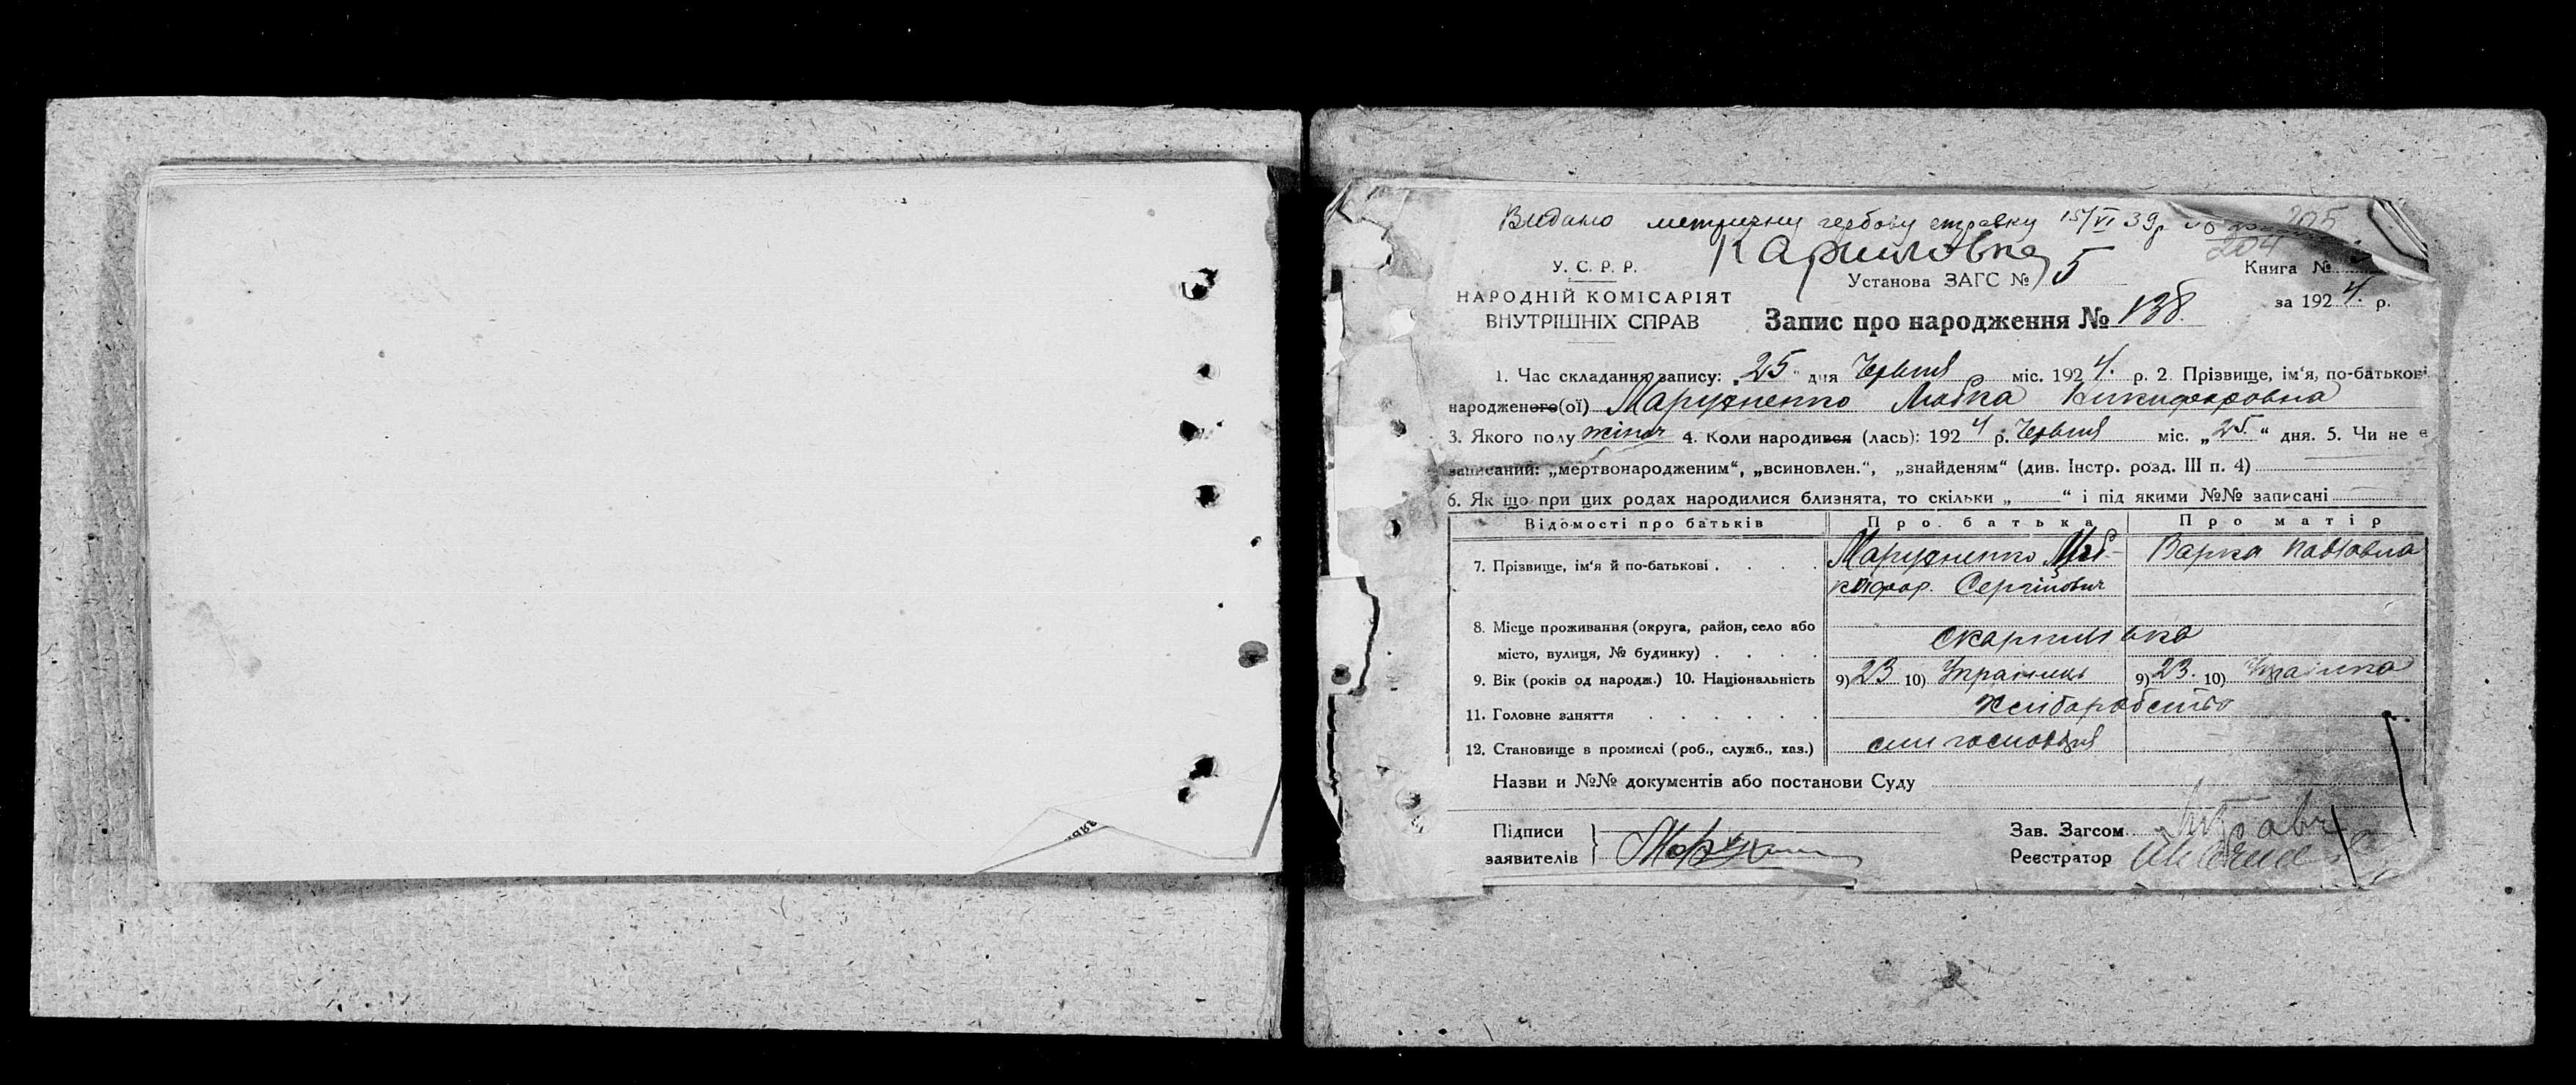 Видано метричну гербову справку 15/VI 39р
205
204
Карпиловка
У. С. Р. Р.
Установа ЗАГС № 5
Книга №
НАРОДНІЙ КОМІСАРІЯТ
ВНУТРІШНІХ СПРАВ
за 1924. р.
Запис про народження № 138.
1. Час складання запису: „25“ дня Червня міс. 1924. р. 2. Прізвище, ім'я, по-батькові
народженого(ої) Марухненко Любка Никифоровна
3. Якого полу жіноч 4. Коли народився (лась): 1924 р. Червня міс. „25.“ дня. 5. Чи не є
записаний: „мертвонародженим“, „всиновлен.“, „знайденям“ (див. Інстр. розд. III п. 4)
6. Як що при цих родах народилися близнята, то скільки „ “ і під якими №№ записані
Відомості про батьків Про батька Про матір
7. Прізвище, ім'я й по-батькові . . . . Марухненко Ни- Варка Павловна
кифор. Сергійович
8. Місце проживання (округа, район, село або
місто, вулиця, № будинку) . . . .
9. Вік (років од народж.) 10. Національність 9) 23 10) Українець 9) 23. 10) Українка
11. Головне заняття . . . . . . Хліборобство
12. Становище в промислі (роб., служб., хаз.) син господаря
Назви и №№ документів або постанови Суду
Підписи
заявителів
Зав. Загсом
Реєстратор